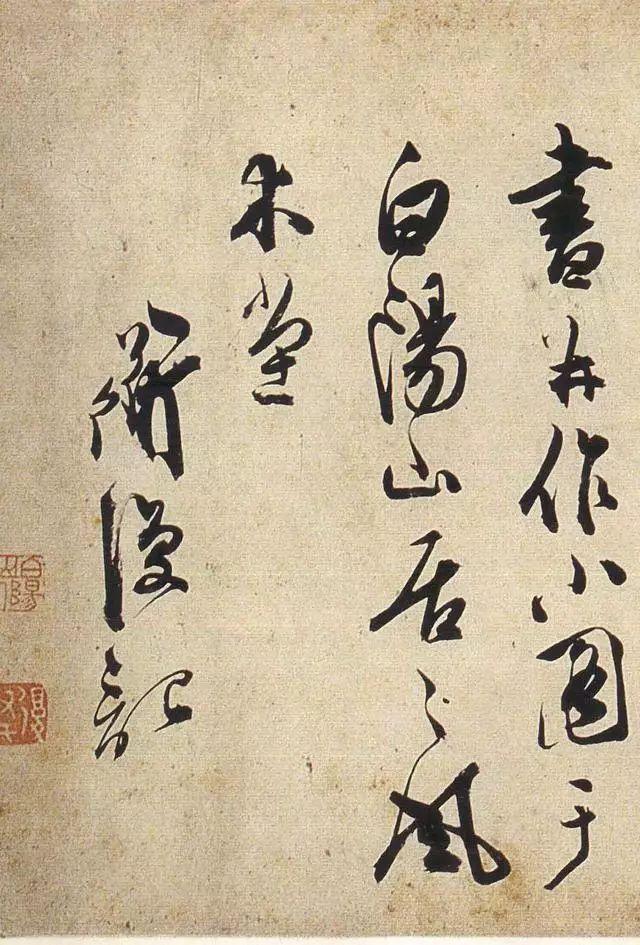 書并作小圖于
白陽山居之風
木堂
衜復記